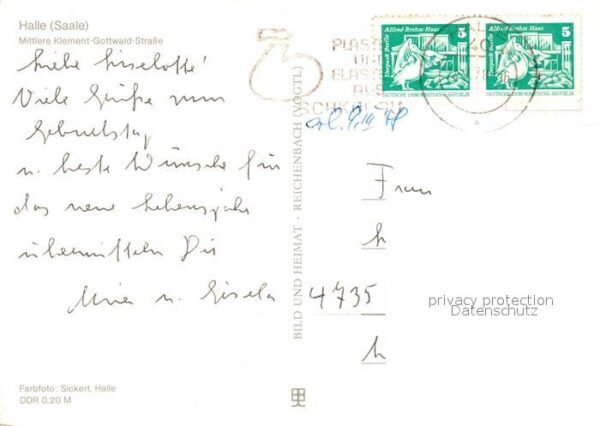 Halle (Saale)
Mittlere Klement-Gottwald-Straße
Liebe Liselotte!
Viele Grüße zum
Geburtstag
u. beste Wünsche für
das neue Lebensjahr
übermitteln Dir
u. Gisela
Farbfoto: Sickert, Halle
DDR 0,20 M
BILD UND HEIMAT · REICHENBACH (VOGTL)
PLAST
UND
ELAST
AUS
SCHKOPAU
40
Alfred-Brehm-Haus
Tierpark Berlin
5
DEUTSCHE DEMOKRATISCHE REPUBLIK
Alfred-Brehm-Haus
Tierpark Berlin
5
DEUTSCHE DEMOKRATISCHE REPUBLIK
Frau
h
4735
h
privacy protection
Datenschutz